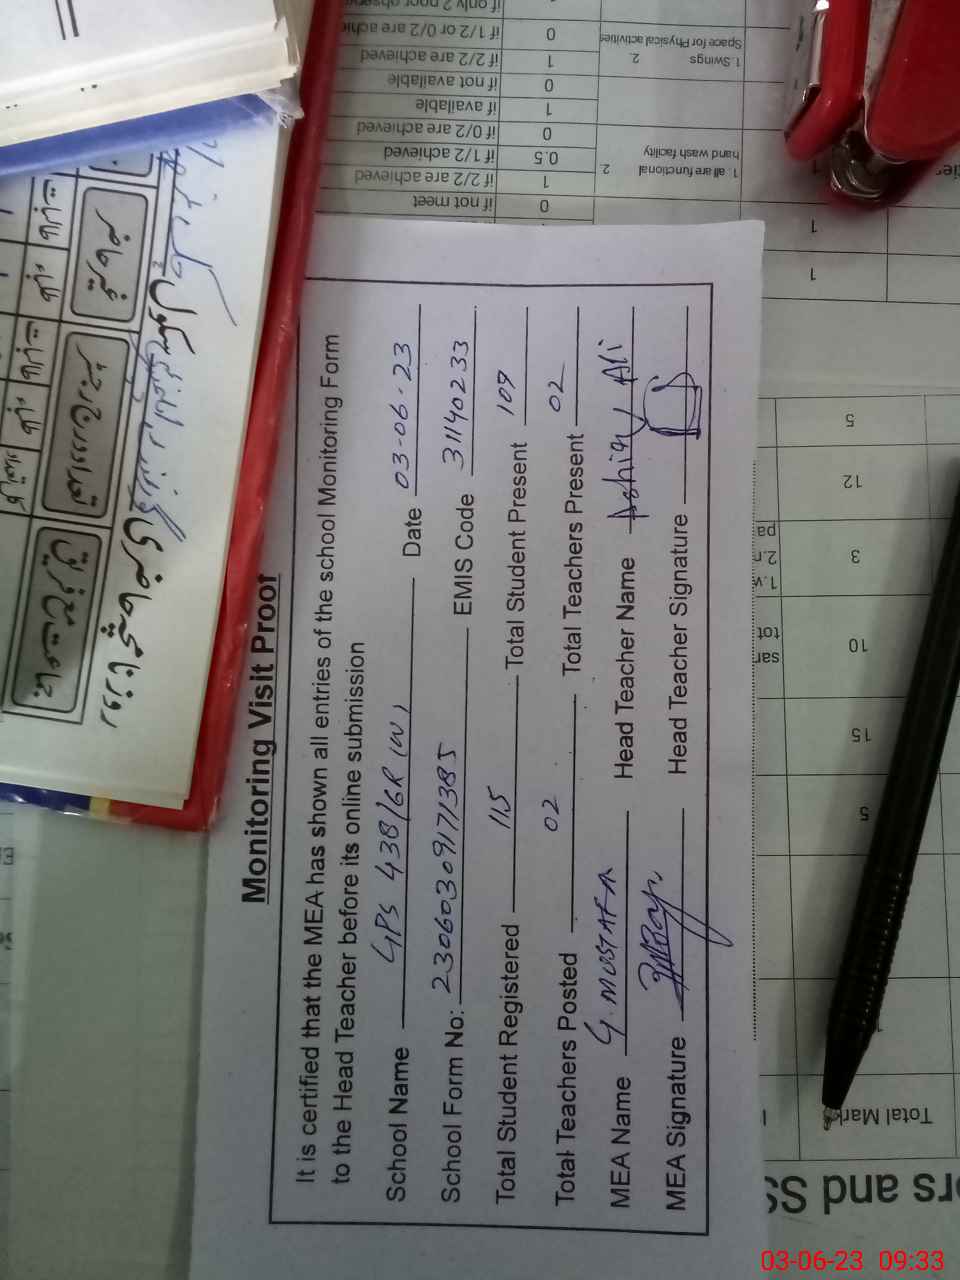 Monitoring Visit Proof
It is certified that the MEA has shown all entries of the school Monitoring Form
to the Head Teacher before its online submission
School Name GPS 438/GR (W) Date 03-06-23
School Form No: 23060309171385 EMIS Code 31140233
Total Student Registered 115 Total Student Present 109
Total Teachers Posted 02 Total Teachers Present 02
MEA Name G. MUSTAFA Head Teacher Name Ashiq Ali
MEA Signature Head Teacher Signature
روزنامچہ حاضری
سکول
جماعت مع فریق
تعداد مندرج رجسٹر
غیر حاضر
if 1/2 or 0/2 are 0
1.Swings 2. if 2/2 are achieved 1
Space for Physical activities if not available 0
if available 1
if 0/2 are achieved 0
1. all are functional 2 if 1/2 achieved 0.5
hand wash facility if 2/2 are achieved 1
if not meet 0
1
1
5
12
3
10
15
5
Total Mark
ors and SS
03-06-23 09:33